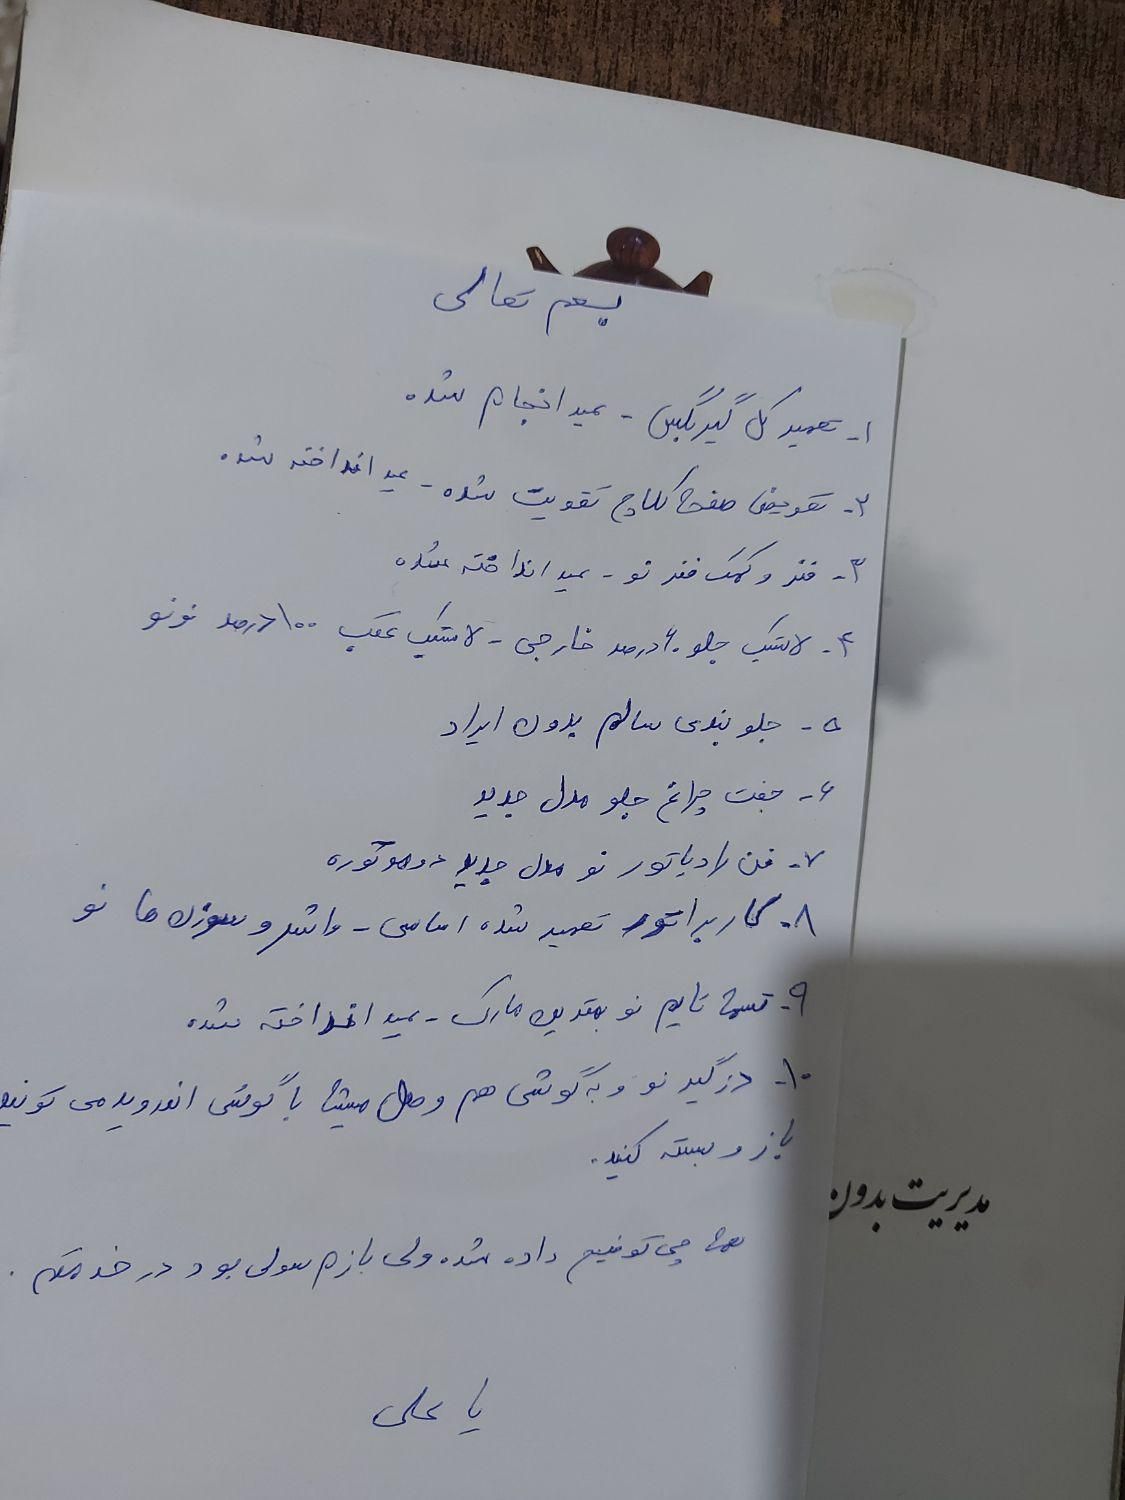 بسم تعالی
۱- تعمیر کل گیربگس - عید انجام شده
۲- تعویض صفحه کلاچ تقویت شده - عید انداخته شده
۳- فنر و کمک فنر نو - عید انداخته شده
۴- لاستیک جلو ۶۰ درصد خارجی - لاستیک عقب ۱۰۰ درصد نونو
۵- جلو بندی سالم بدون ایراد
۶- جفت چراغ جلو مدل جدید
۷- فن رادیاتور نو مدل جدید دوموتوره
۸- کاربراتور تعمیر شده اساسی - واشر و سوزن ها نو
۹- تسمه تایم نو بهترین مارک - عید انداخته شده
۱۰- دزگیر نو و به گوشی هم وصل میشه با گوشی اندروید می تونید
باز و بسته کنید.
همه چی توضیح داده شده ولی بازم سولی بود در خدمتم.
یا علی
مدیریت بدون